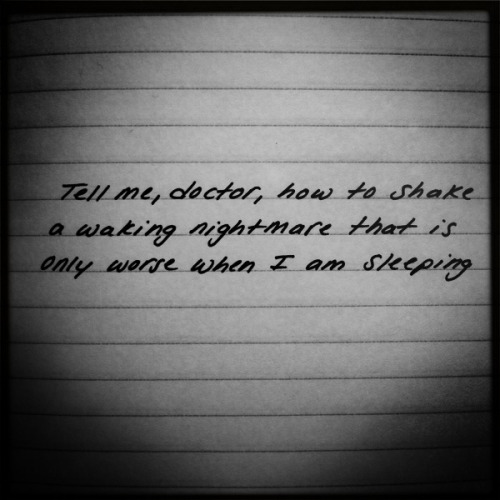 Tell me, doctor, how to shake
a waking nightmare that is
only worse when I am sleeping